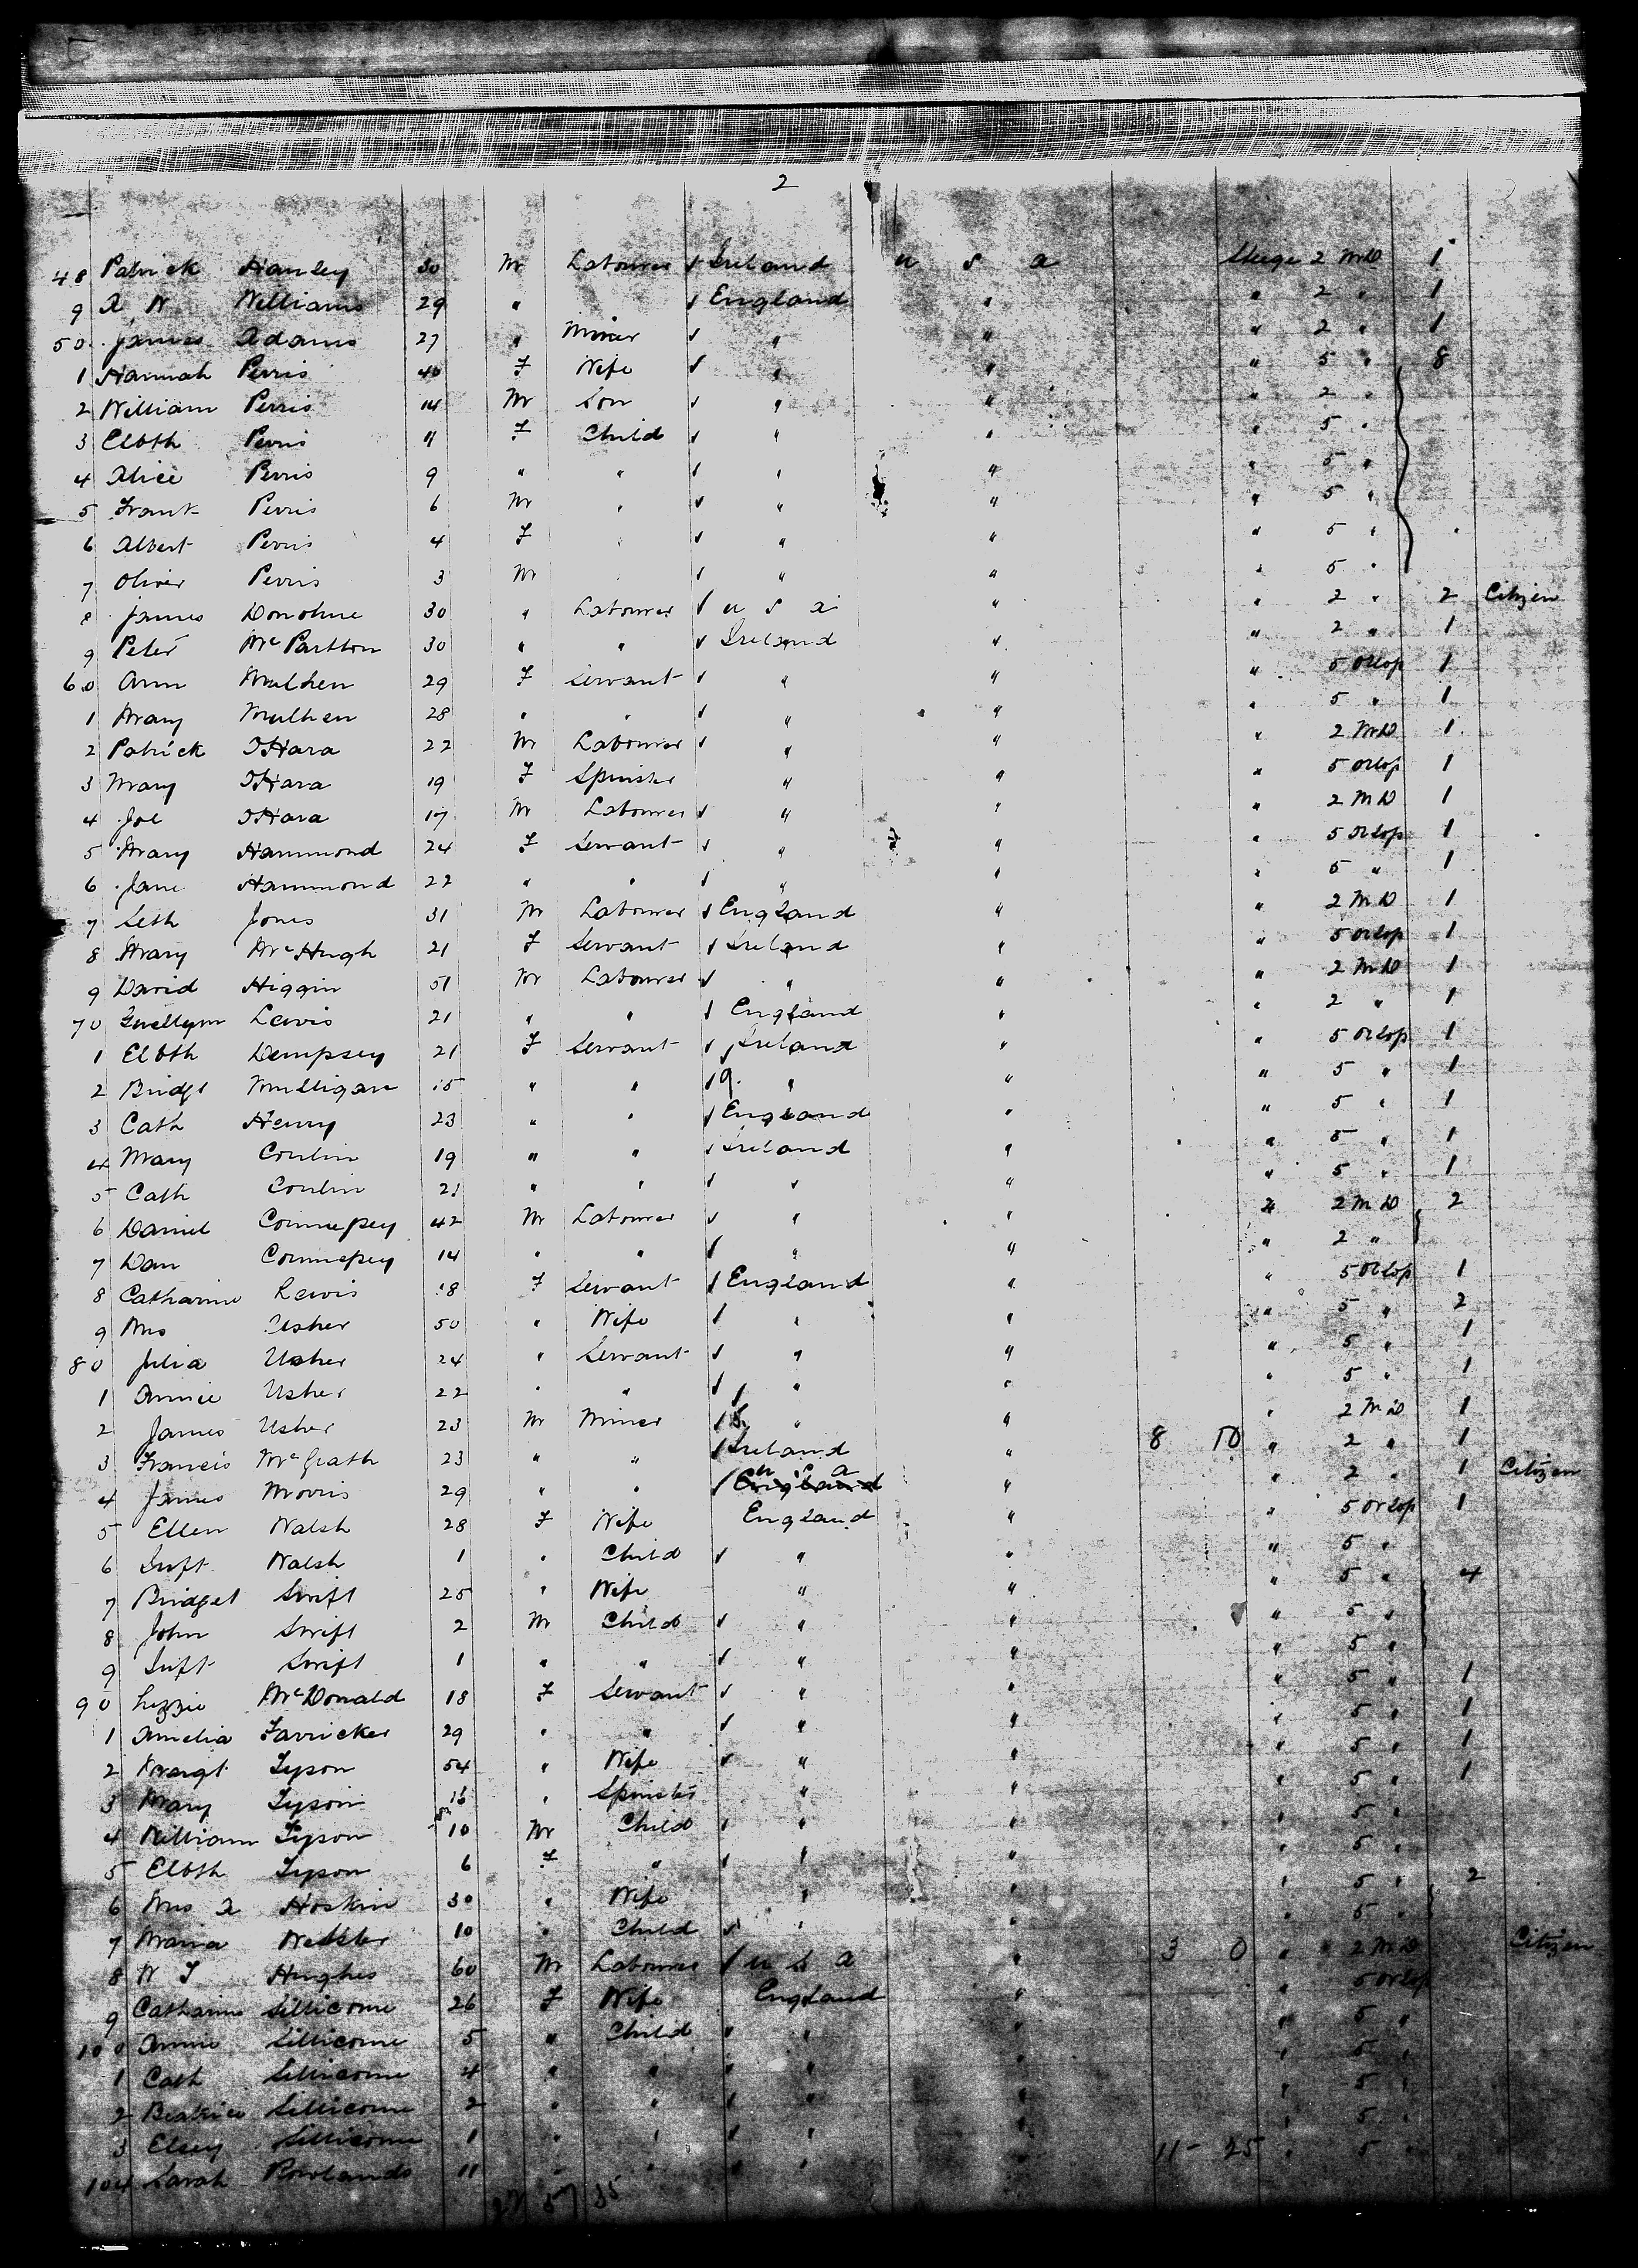 2
48 Patrick Hanley 30 M Labourer Ireland U S A Steege 2 M D 1
9 A W Williams 29 " England " " 2 " 1
50 James Adams 27 " Miner " " " 2 " 1
1 Hannah Perris 40 F Wife " " " 5 " 8
2 William Perris 14 M Son " " " 2 "
3 Elbth Perris 11 F Child " " " 5 "
4 Alice Perris 9 " " " " " 5 "
5 Frank Perris 6 M " " " " 5 "
6 Albert Perris 4 F " " " " 5 "
7 Oliver Perris 3 M " " " " 5 "
8 James Donohue 30 " Labourer U S A " " 2 " 2 Citizen
9 Peter McPartton 30 " " Ireland " " 2 " 1
60 Ann Mulhen 29 F Servant " " " 5 Orlop 1
1 Mary Mulhen 28 " " " " " 5 " 1
2 Patrick OHara 22 M Labourer " " " 2 M D 1
3 Mary OHara 19 F Spinster " " " 5 Orlop 1
4 Joe OHara 17 M Labourer " " " 2 M D 1
5 Mary Hammond 24 F Servant " " " 5 Orlop 1
6 Jane Hammond 22 " " " " " 5 " 1
7 Seth Jones 31 M Labourer England " " 2 M D 1
8 Mary McHugh 21 F Servant Ireland " " 5 Orlop 1
9 David Higgin 51 M Labourer " " " 2 M D 1
70 Gwellym Lewis 21 " " England " " 2 " 1
1 Elbth Dempsey 21 F Servant Ireland " " 5 Orlop 1
2 Bridgt Mulligan 15 " " " " " 5 " 1
3 Cath Henry 23 " " England " " 5 " 1
4 Mary Conlin 19 " " Ireland " " 5 " 1
5 Cath Conlin 21 " " " " " 5 " 1
6 Daniel 42 M Labourer " " " 2 M D 2
7 Dan 14 " " " " " 2 "
8 Catharine Lewis 18 F Servant England " " 5 Orlop 1
9 Mrs Usher 50 " Wife " " " 5 " 2
80 Julia Usher 24 " Servant " " " 5 " 1
1 Annie Usher 22 " " " " " 5 " 1
2 James Usher 23 M Miner " " " 2 M D 1
3 Francis McGrath 23 " " Ireland " 8 10 " 2 " 1
4 James Morris 29 " " U S A " " 2 " 1 Citizen
5 Ellen Walsh 28 F Wife England " " 5 Orlop 1
6 Inft Walsh 1 " Child " " " 5 "
7 Bridget Swift 25 " Wife " " " 5 " 4
8 John Swift 2 M Child " " " 5 "
9 Inft Swift 1 " " " " " 5 "
90 Lizzie McDonald 18 F Servant " " " 5 " 1
1 Amelia Farricker 29 " " " " " 5 " 1
2 Margt Tyson 54 " Wife " " " 5 " 1
3 Mary Tyson 16 " Spinster " " " 5 " 1
4 William Tyson 10 M Child " " " 5 "
5 Elbth Tyson 6 F " " " " 5 "
6 Mrs A Hoskin 30 " Wife " " " 5 " 2
7 Maria Webster 10 " Child " " " 5 "
8 W J Hughes 60 M Labourer U S A " 3 0 " 2 M D Citizen
9 Catharine Sillicome 26 F Wife England " " 5 Orlop
100 Annie Sillicome 5 " Child " " " 5 "
1 Cath Sillicome 4 " " " " " 5 "
2 Beatrice Sillicome 2 " " " " " 5 "
3 Elsey Sillicome 1 " " " " " 5 "
104 Sarah Rowlands 11 " " " " 11 25 " 5 "